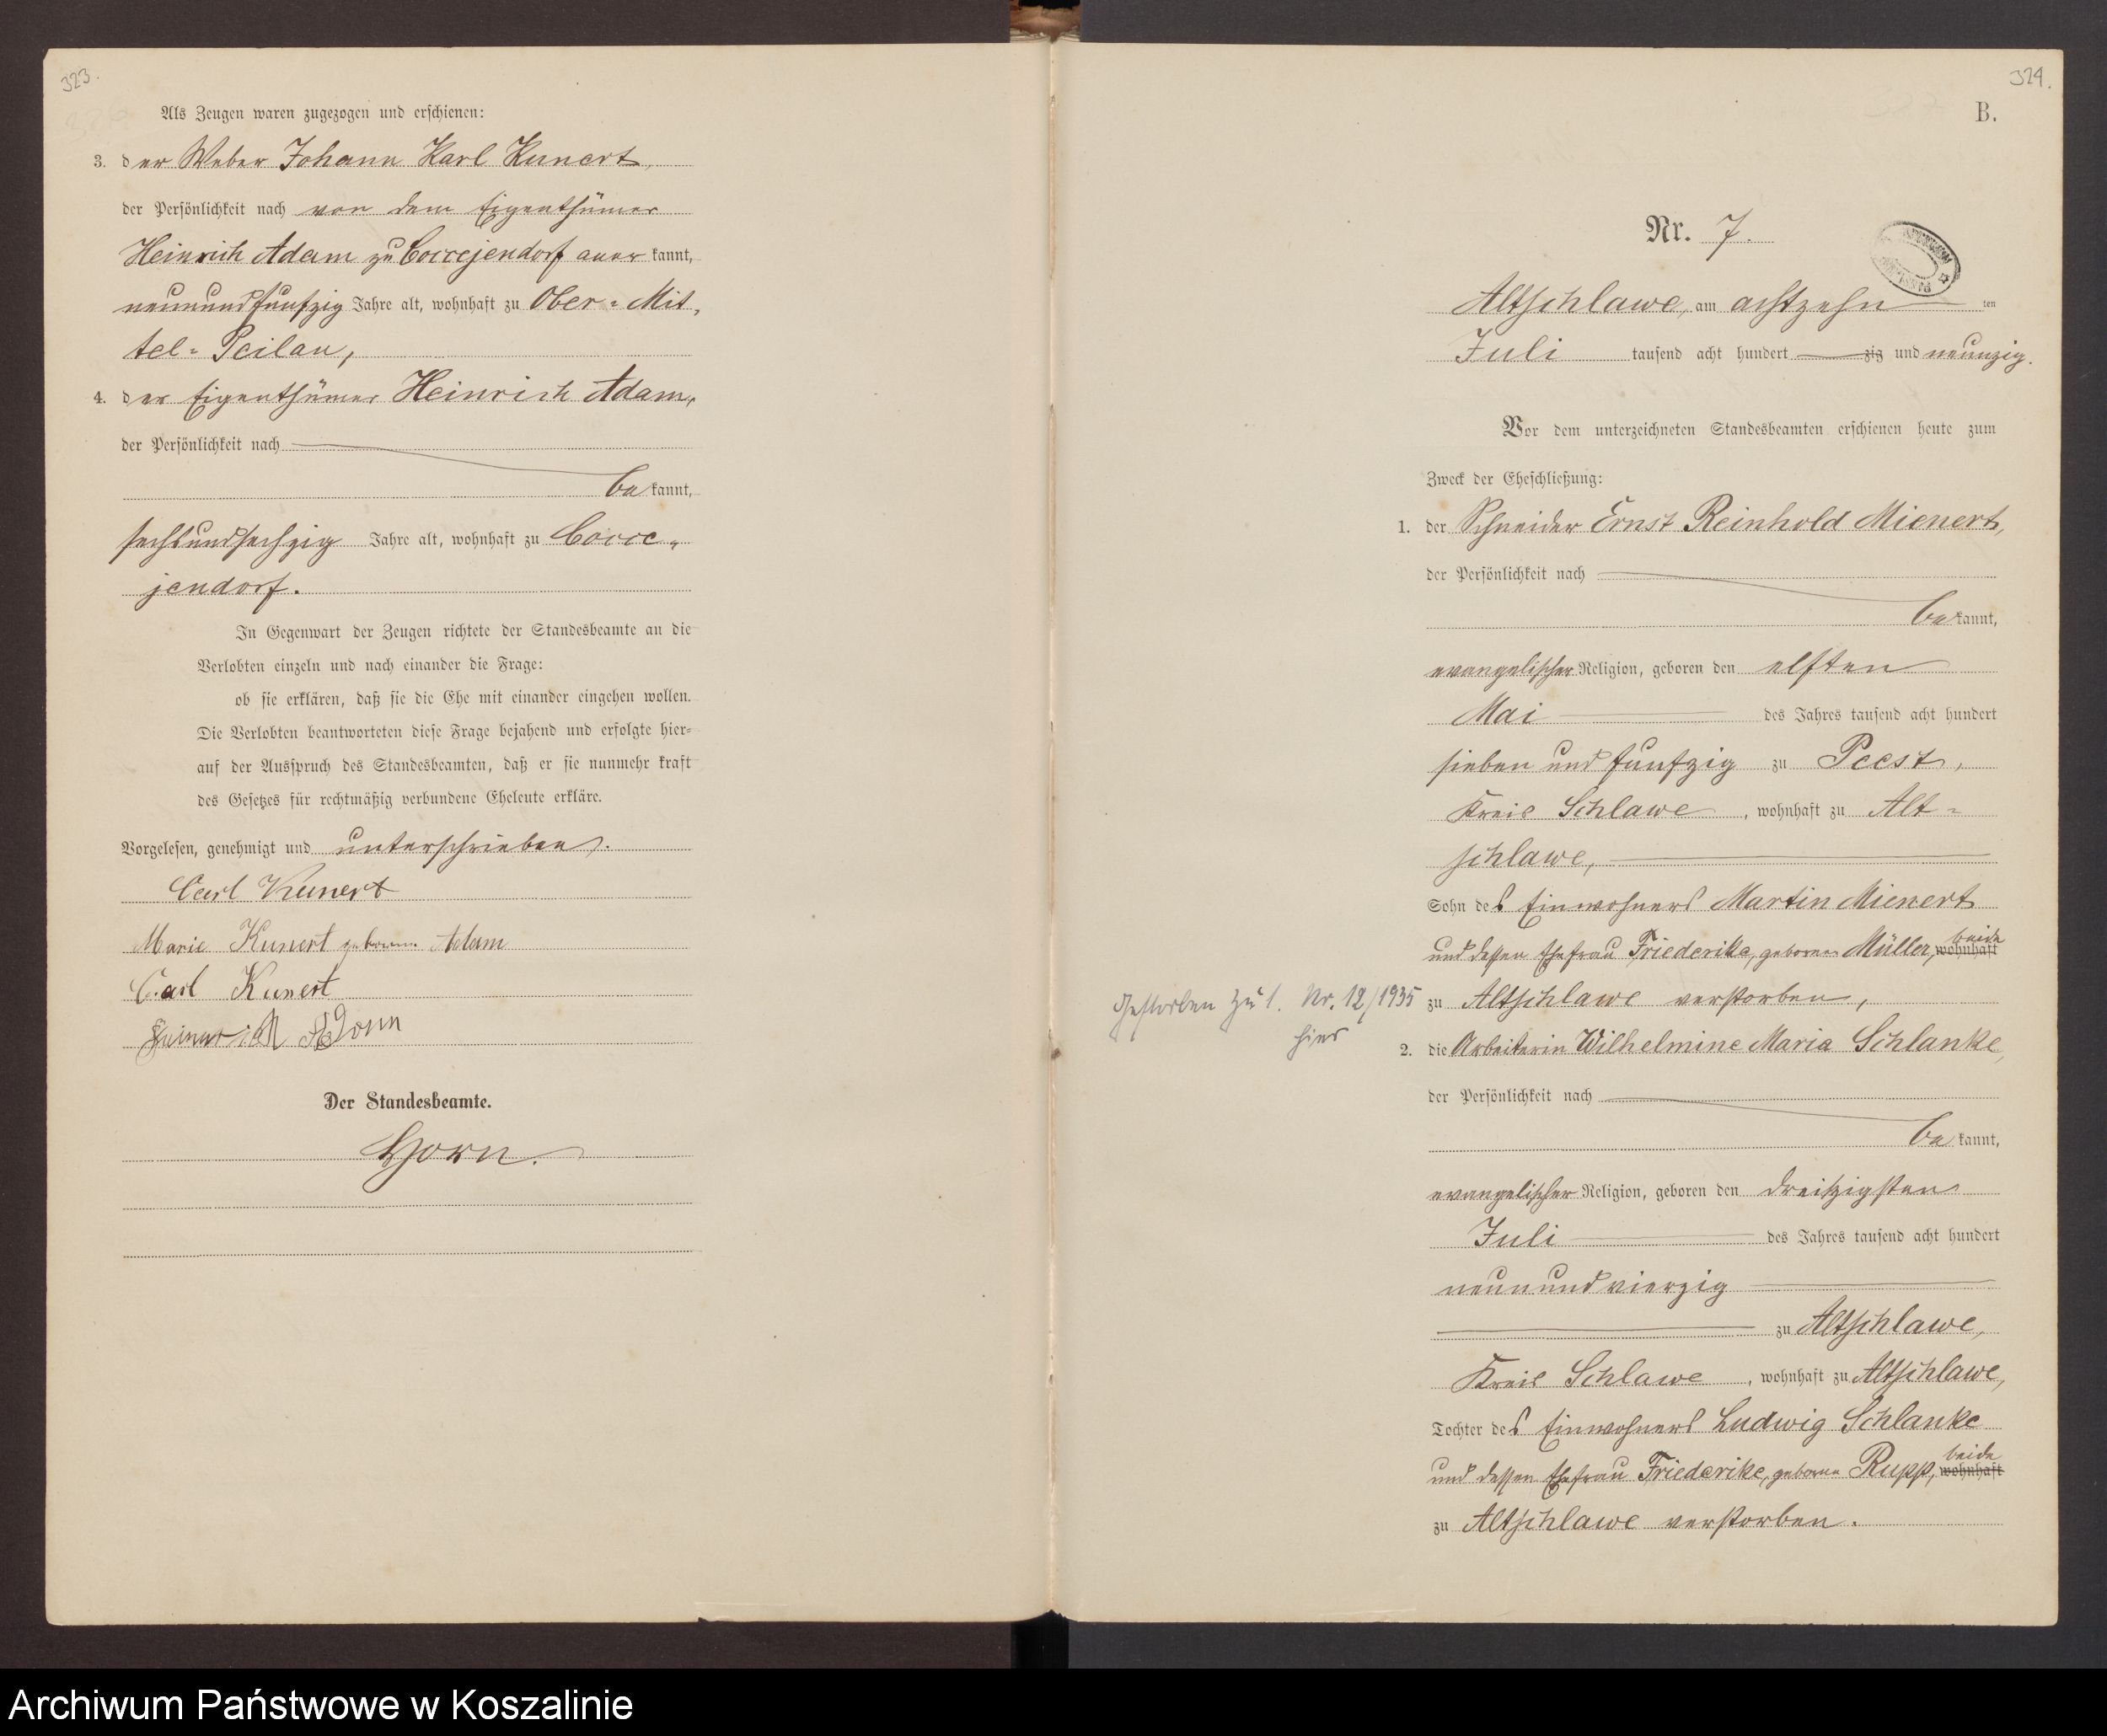 323.
Als Zeugen waren zugezogen und erschienen:
3. der Weber Johann Karl Kunert,
der Persönlichkeit nach von dem Eigenthümer
Heinrich Adam zu Coccejendorf anerkannt,
neunundfunfzig Jahre alt, wohnhaft zu Ober-Mit-
tel-Peilau,
4. der Eigenthümer Heinrich Adam,
der Persönlichkeit nach
bekannt,
sechsundsechzig Jahre alt, wohnhaft zu Cocce-
jendorf.
In Gegenwart der Zeugen richtete der Standesbeamte an die
Verlobten einzeln und nach einander die Frage:
ob sie erklären, daß sie die Ehe mit einander eingehen wollen.
Die Verlobten beantworteten diese Frage bejahend und erfolgte hier-
auf der Ausspruch des Standesbeamten, daß er sie nunmehr kraft
des Gesetzes für rechtmäßig verbundene Eheleute erkläre.
Vorgelesen, genehmigt und unterschrieben.
Carl Kunert
Marie Kunert geborene Adam
Carl Kunert
Heinrich Adam
Der Standesbeamte.
Horn.
324.
B.
Nr. 7.
Altschlawe, am achtzehnten
Juli tausend acht hundert zig und neunzig.
Vor dem unterzeichneten Standesbeamten erschienen heute zum
Zweck der Eheschließung:
1. der Schneider Ernst Reinhold Mienert,
der Persönlichkeit nach
bekannt,
evangelischer Religion, geboren den elften
Mai des Jahres tausend acht hundert
sieben und funfzig zu Peest,
Kreis Schlawe, wohnhaft zu Alt-
schlawe,
Sohn des Einwohners Martin Mienert
und dessen Ehefrau Friederike, geborene Müller, beide wohnhaft
zu Altschlawe verstorben,
Gestorben zu 1. Nr. 12/1935
hier
2. die Arbeiterin Wilhelmine Maria Schlanke,
der Persönlichkeit nach
bekannt,
evangelischer Religion, geboren den dreißigsten
Juli des Jahres tausend acht hundert
neunundvierzig
zu Altschlawe,
Kreis Schlawe, wohnhaft zu Altschlawe,
Tochter des Einwohners Ludwig Schlanke
und dessen Ehefrau Friederike, geborene Rupp, beide wohnhaft
zu Altschlawe verstorben.
Archiwum Państwowe w Koszalinie